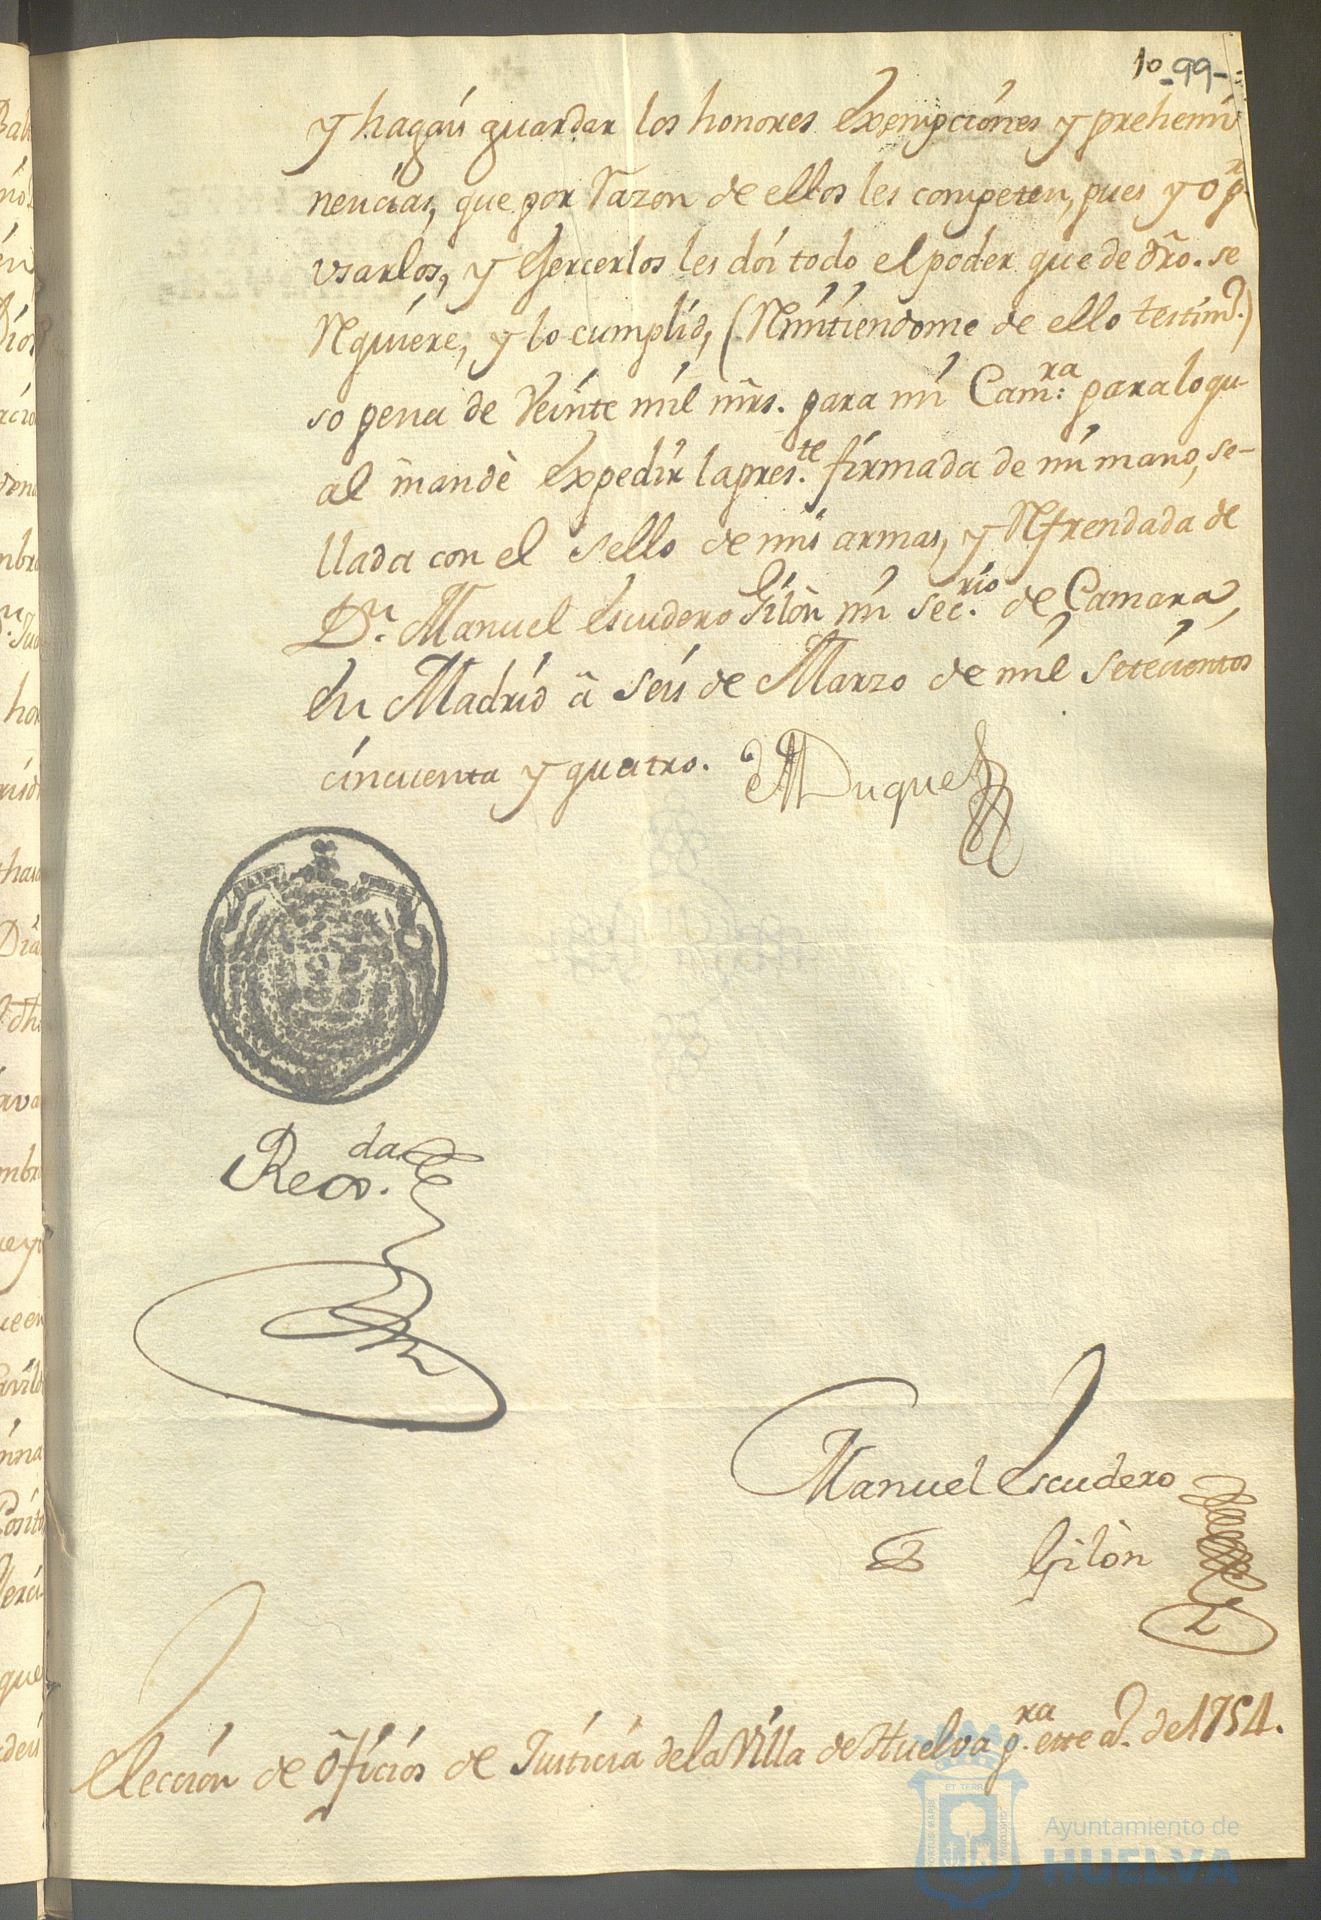 10 -99-
y hagais guardar los honores exempciones y prehemi
nencias, que por razon de ellos les competen, pues yo p.ª
usarlos, y exercerlos les dói todo el poder que de dr̃o. se
requiere, y lo cumplid, (remitiendome de ello testim.º)
so pena de Veinte mil mr̃s. para mi Cam.ra para lo qu-
al mandè expedir la pres.te firmada de mi mano, se-
llada con el sello de mis armas, y refrendada de
D.n Manuel escudero Gilòn mi Sec.rio de Camara,
en Madrid â Seis de Marzo de mil Setecientos
cincuenta y quatro.
el Duque
Rexx.da
Manuel Escudero
Gilòn
Elección de oficios de Justicia de la Villa de Huelva p.ra este a.º de 1754.
ET TERRÆ
Ayuntamiento de
HUELVA